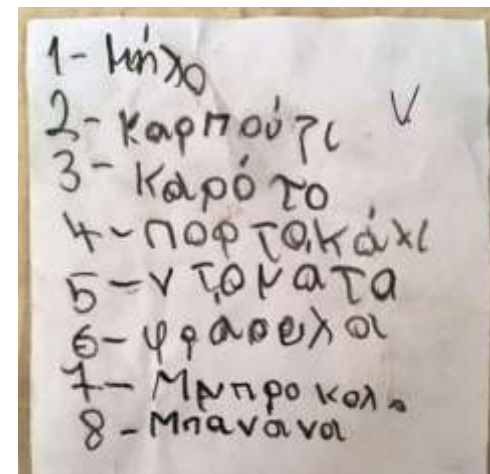 1- Μήλο
2- Καρπούζι V
3- Καρότο
4- Πορτοκάλι
5- ντοματα
6- φραουλα
7- Μπρπροκολο
8- Μπανανα